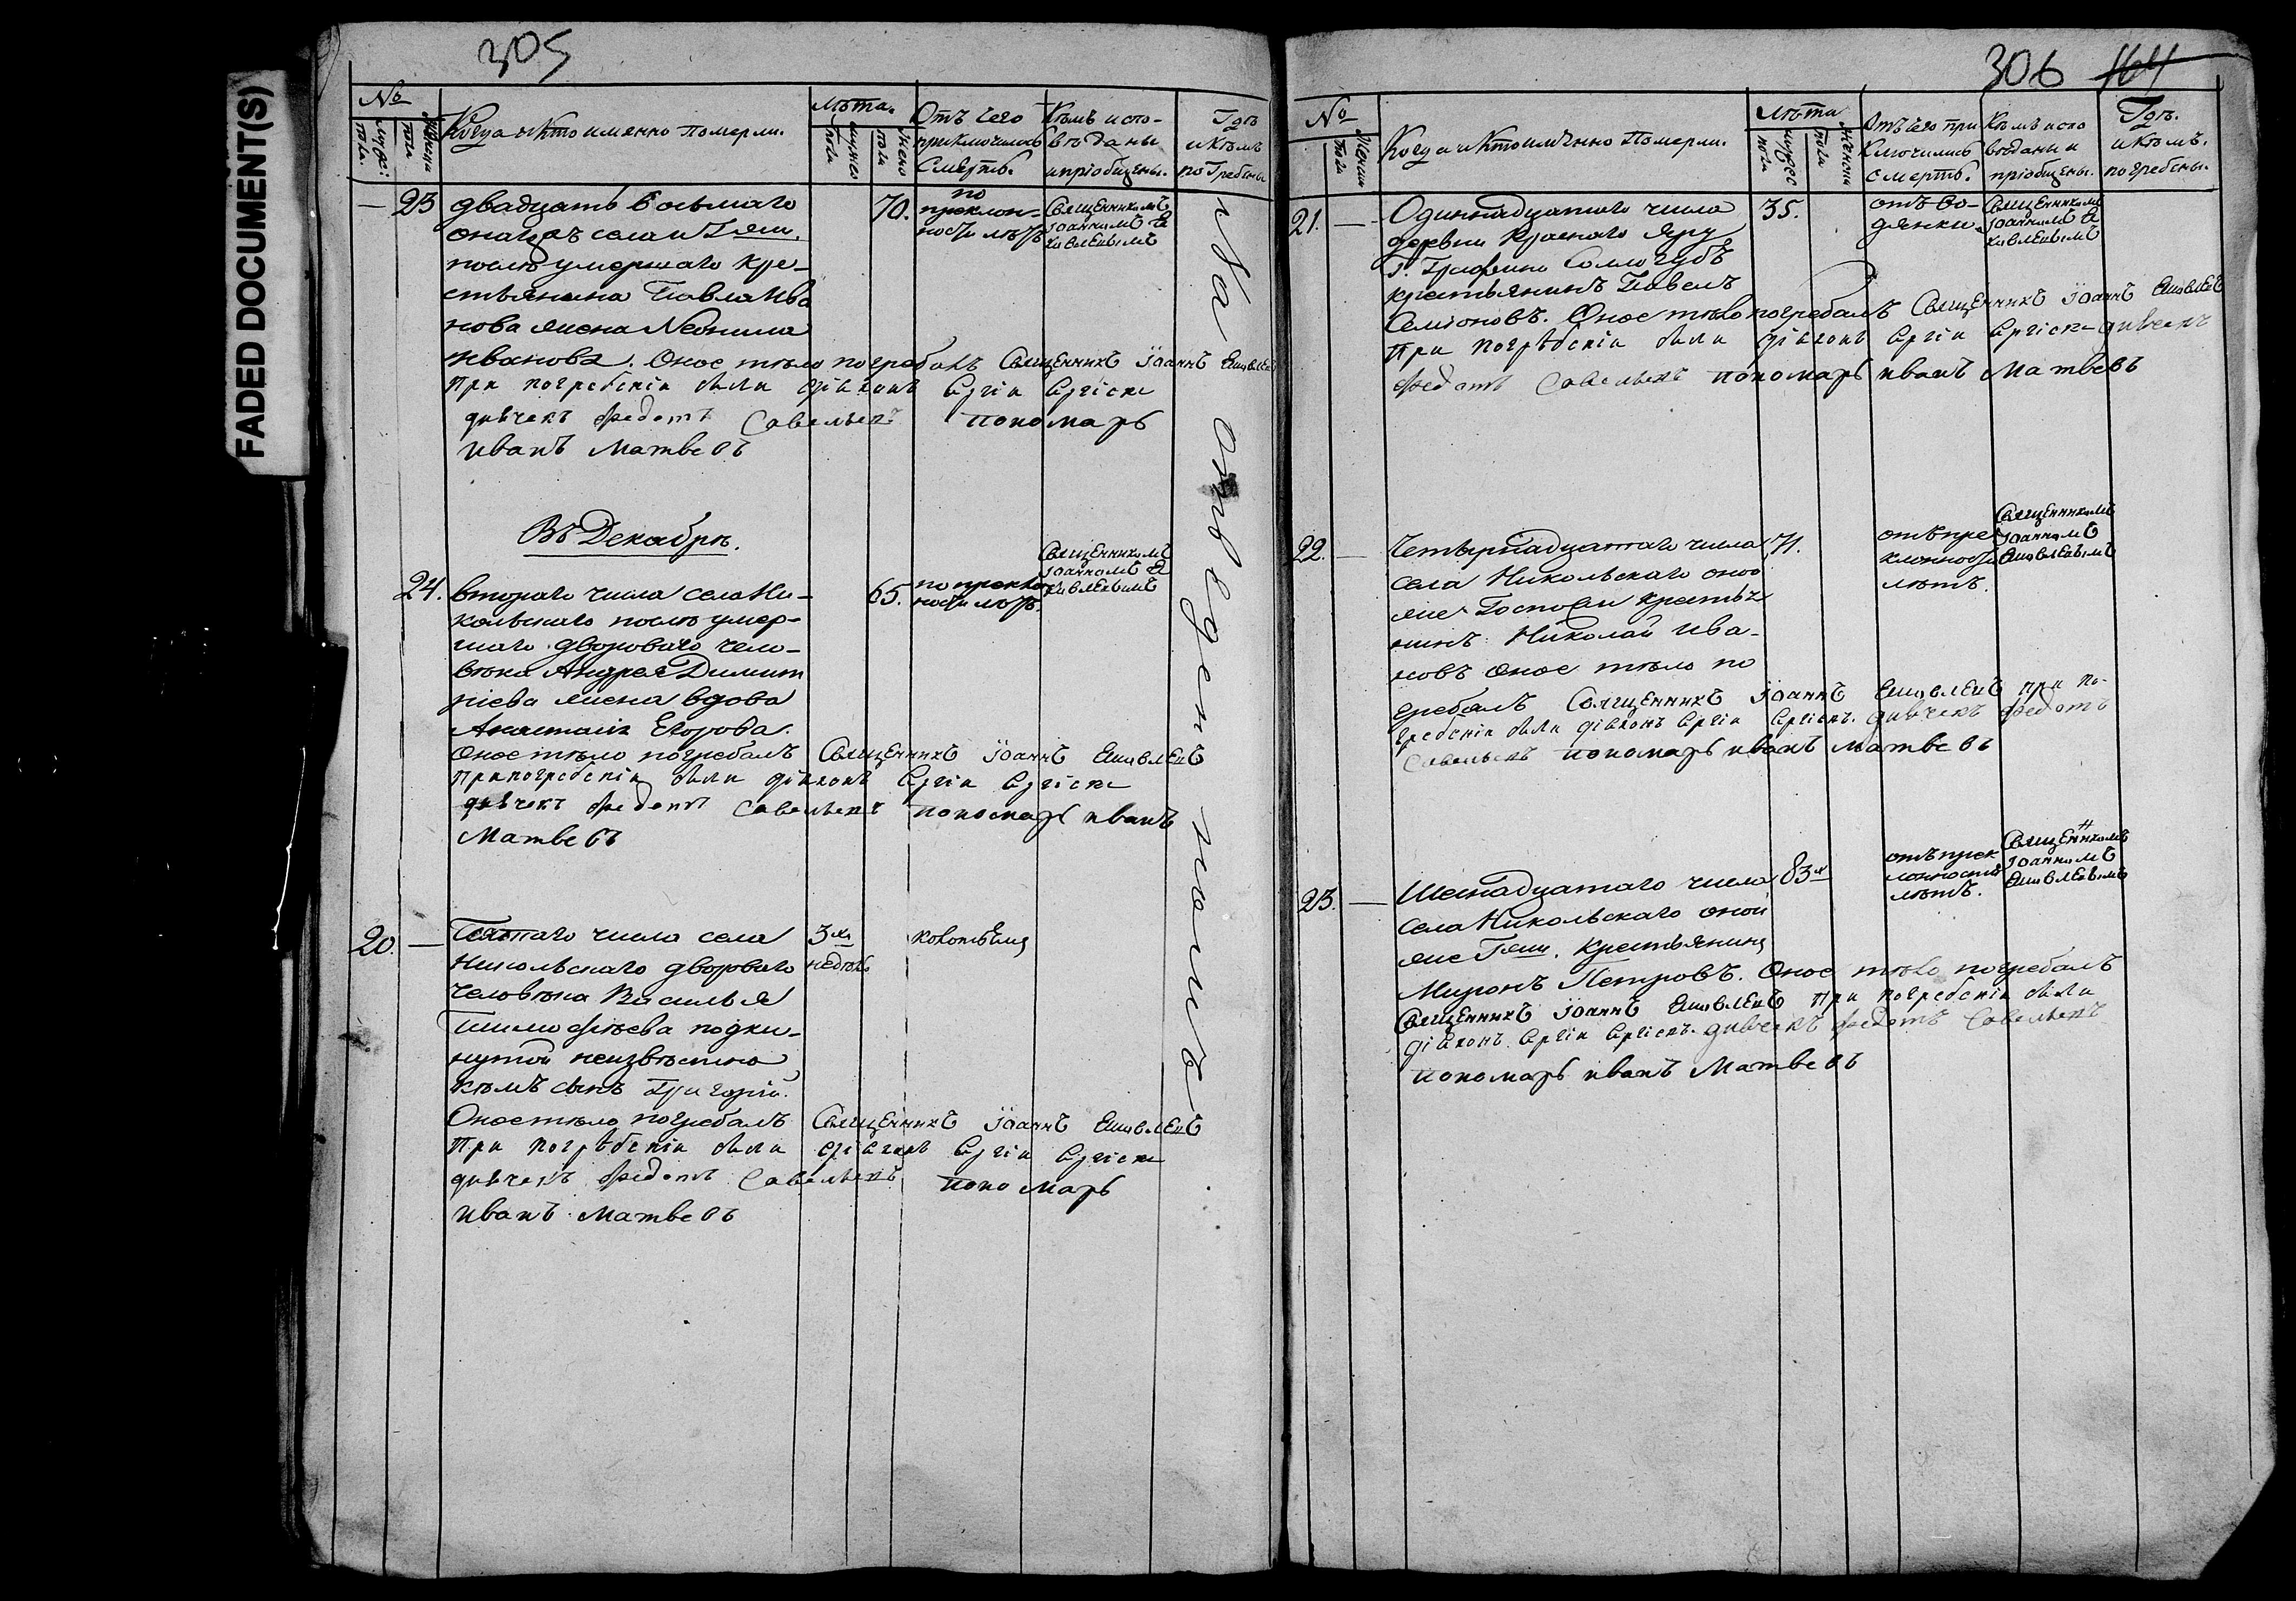 FADED DOCUMENT(S)
305
№
мужес: пола.
женска пола
Когда и кто имянно померли.
Лѣта.
мужес пола
женс пола
Отъ чего приключилась Смерть.
Кѣмъ испо-
вѣданы
и пріобщены.
Гдѣ
и кѣмъ
погребены
— 23
двадцать осьмаго
онагожъ села и Гжи.
послѣ умершаго кре-
стьянина Павла Ива
нова жена Неонила
Иванова. Оное тѣло погребалъ Священникъ Іоаннъ Яковлевъ
При погребеніи были діаконъ Сргіи Сргіевъ
дьячекъ Федотъ Савельевъ пономарь
иванъ Матвевъ
70.
по
преклон-
ности лѣтъ
Священникомъ
Іоанномъ Я
ковлевымъ
На отведенномъ
Въ Декабрѣ.
24.
втораго числа села Ни-
кольскаго послѣ умер-
шаго двороваго чело-
вѣка Андрея Димит
ріева жена вдова
Анастасія Егорова.
Оное тѣло погребалъ Священникъ Іоаннъ Яковлевъ
При погребеніи были діаконъ Сргіи Сргіевъ
дьячекъ Федотъ Савельевъ пономарь иванъ
Матвевъ
65.
по преклон
ности лѣтъ.
Священникомъ
Іоанномъ Я
ковлевымъ
20. —
Пятаго числа села
Никольскаго двороваго
человѣка Василья
Тимофѣева подки-
нутой неизвѣстно
кѣмъ сынъ Григорій.
Оное тѣло погребалъ Священникъ Іоаннъ Яковлевъ
При погрѣбеніи были діаконъ Сргіи Сргіевъ
дьячекъ Федотъ Савельевъ пономарь
иванъ Матвевъ
3хъ
недѣль
306 164
№
пола
женска
Когда и кто имѣнно Померли.
Лѣта
мужес пола
женска пола
Отъ чего при
ключились
смерть.
Кѣмъ испо
вѣданы и
пріобщены.
Гдѣ.
и кѣмъ.
погребены.
21. —
Одиннадцатаго числа
деревни Краснаго Яру
Г. Графини Сологубъ
крестьянинъ Павелъ
Семіоновъ. Оное тѣло погребалъ Священникъ Іоаннъ Яковлевъ
При погрѣбеніи были діаконъ Сргіи Сргіевъ дьячекъ
Федотъ Савельевъ пономарь иванъ Матвевъ
35.
отъ во-
дянки.
Священникомъ
Іоанномъ Я
ковлевымъ
22. —
Четырнадцатаго числа
села Никольскаго оной
же Госпожи крестья
нинъ Николай Ива-
новъ оное тѣло по
гребалъ Священникъ Іоаннъ Яковлевъ при по-
гребеніи были діаконъ Сргіи Сргіевъ. дьячекъ Федотъ
Савельевъ пономарь иванъ Матвевъ
71.
отъ пре
клонности
лѣтъ.
Священникомъ
Іоанномъ
Яковлевымъ
23. —
Шеснадцатаго числа
села Никольскаго оной
же Гжи. крестьянинъ
Миронъ Петровъ. Оное тѣло погребалъ
Священникъ Іоаннъ Яковлевъ При погребеніи были
діаконъ Сргіи Сргіевъ. дьячекъ Федотъ Савельевъ
пономарь иванъ Матвевъ
83х
отъ прек
лонности
лѣтъ.
Священникомъ
Іоанномъ
Яковлевымъ